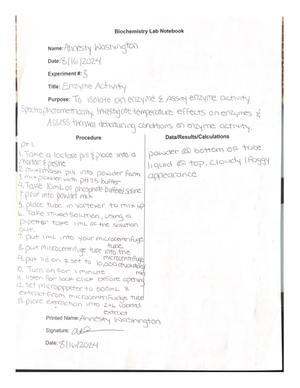 Biochemistry Lab Notebook
Name: Annesty Washington
Date: 8/16/2024
Experiment #: 3
Title: Enzyme Activity
Purpose: To isolate an enzyme & Assay enzyme activity
Spectrophotometrically, Investigate temperature effects on enzymes &
Assess thermal denaturing conditions on enzyme activity.
Procedure
Data/Results/Calculations
pt 1.
1. Take a lactase pill & place into a
mortar & pestle
2. mash pill into powder from
3. mix powder with pH 7.5 buffer
4. Take 10mL of phosphate buffer/saline
& pour into powder mix
5. place tube in vortexer to mix up
6. Take mixed solution, using a
pipetter take 1mL of the solution
out.
7. put 1mL into your microcentrifuge
tube.
8. put microcentrifuge tube into the
microcentrifuge
9. put lid on & set to 10,000
10. Turn on for 1 minute
11. listen for lock click before opening
12. set micropipetter to 500mL &
extract from microcentrifuge tube
13. place extraction into labeled
extract
powder @ bottom of tube
liquid @ top, cloudy/foggy
appearance
Printed Name: Annesty Washington
Signature:
Date: 8/16/2024